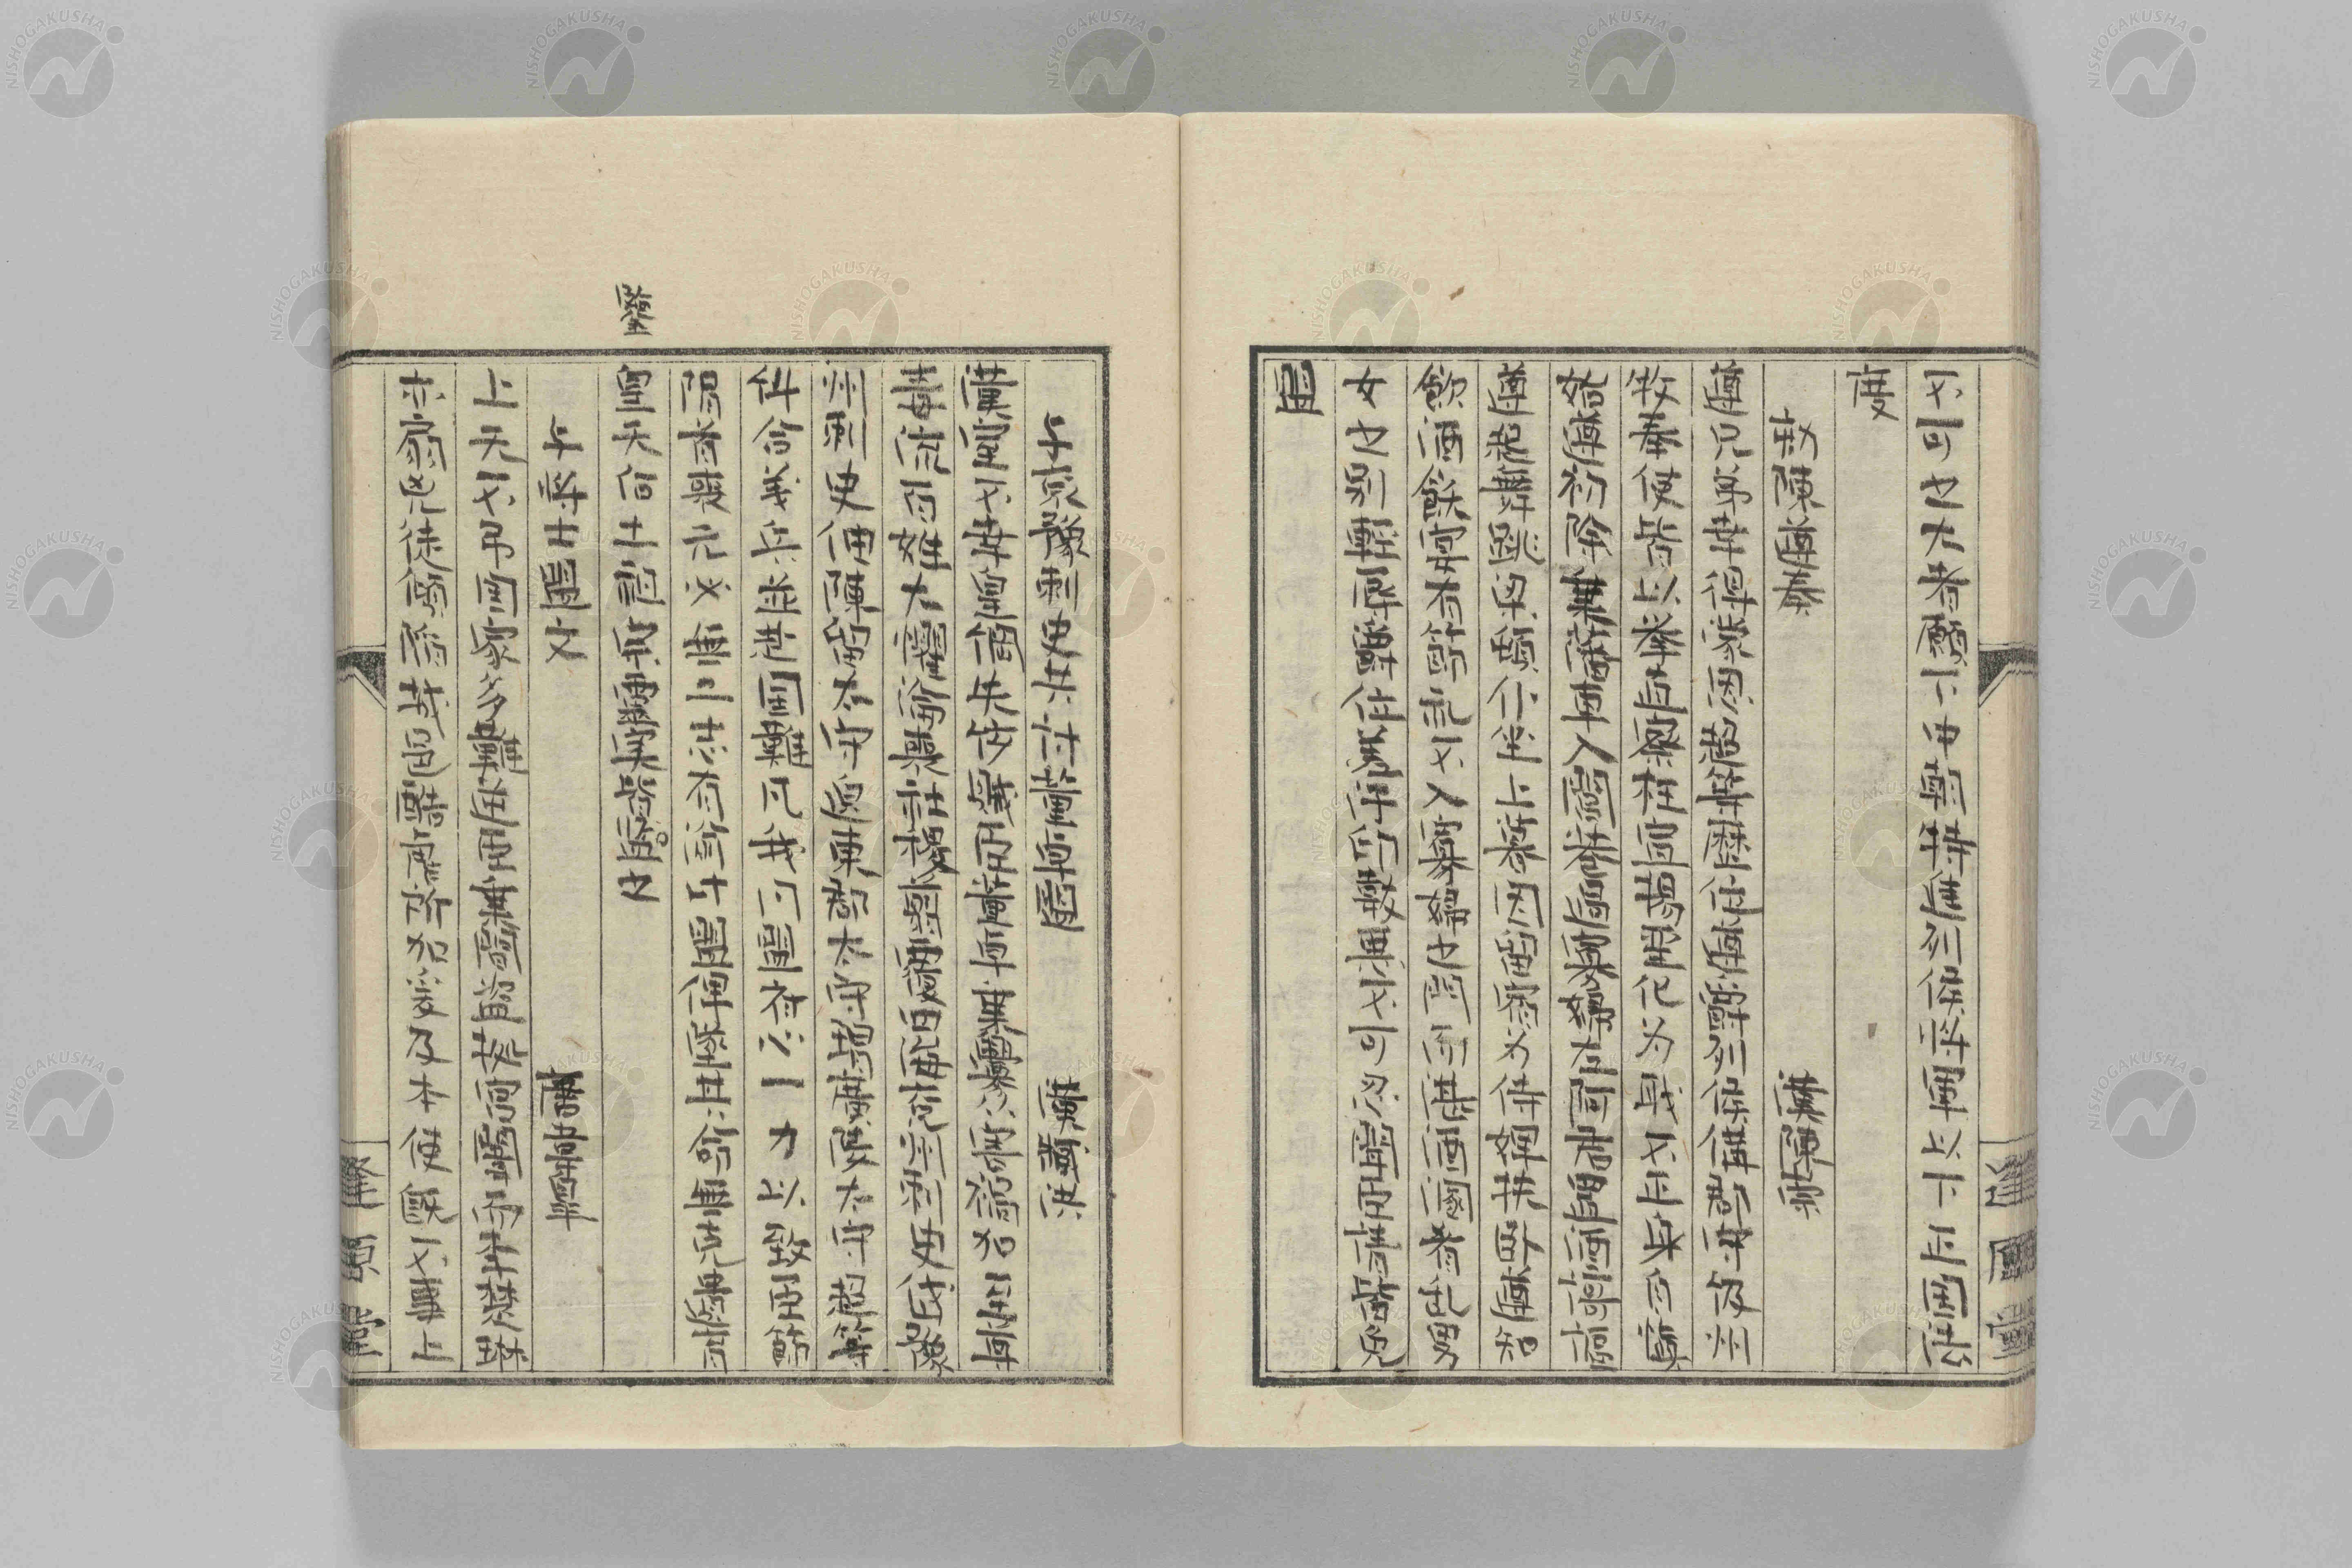 不可也大者願下中朝特進列侯將軍以下正國法
度
劾陳遵奏　漢陳崇
遵兄弟幸得蒙恩超等歷位遵爵列侯備郡守級州
牧奉使皆以舉直察枉宣揚聖化為職不正身自慎
始遵初除乘藩車入閭巷過寡婦左阿君置酒謌謳
遵起舞跳梁頓仆坐上暮因留宿為侍婢扶臥遵知
飲酒飫宴有節禮不入寡婦之門而湛酒溷肴亂男
女之別輕辱爵位羞污印韍惡不可忍聞臣請皆免
與兗豫刺史共討董卓盟　漢臧洪
漢室不幸皇綱失統賊臣董卓乘釁縱害禍加至尊
毒流百姓大懼淪喪社稷翦覆四海兗州刺史岱豫
州刺史伷陳留太守邈東郡太守瑁廣陵太守超等
糾合義兵並赴國難凡我同盟齊心一力以致臣節
隕首喪元必無二志有渝此盟俾墜其命無克遺育
鑒
皇天后土祖宗靈實皆鑒之
與將士盟文　唐韋皋
上天不弔國家多難逆臣乘間盜據宮闈而李楚琳
亦扇兇徒傾陷城邑酷虐所加爰及本使既不事上